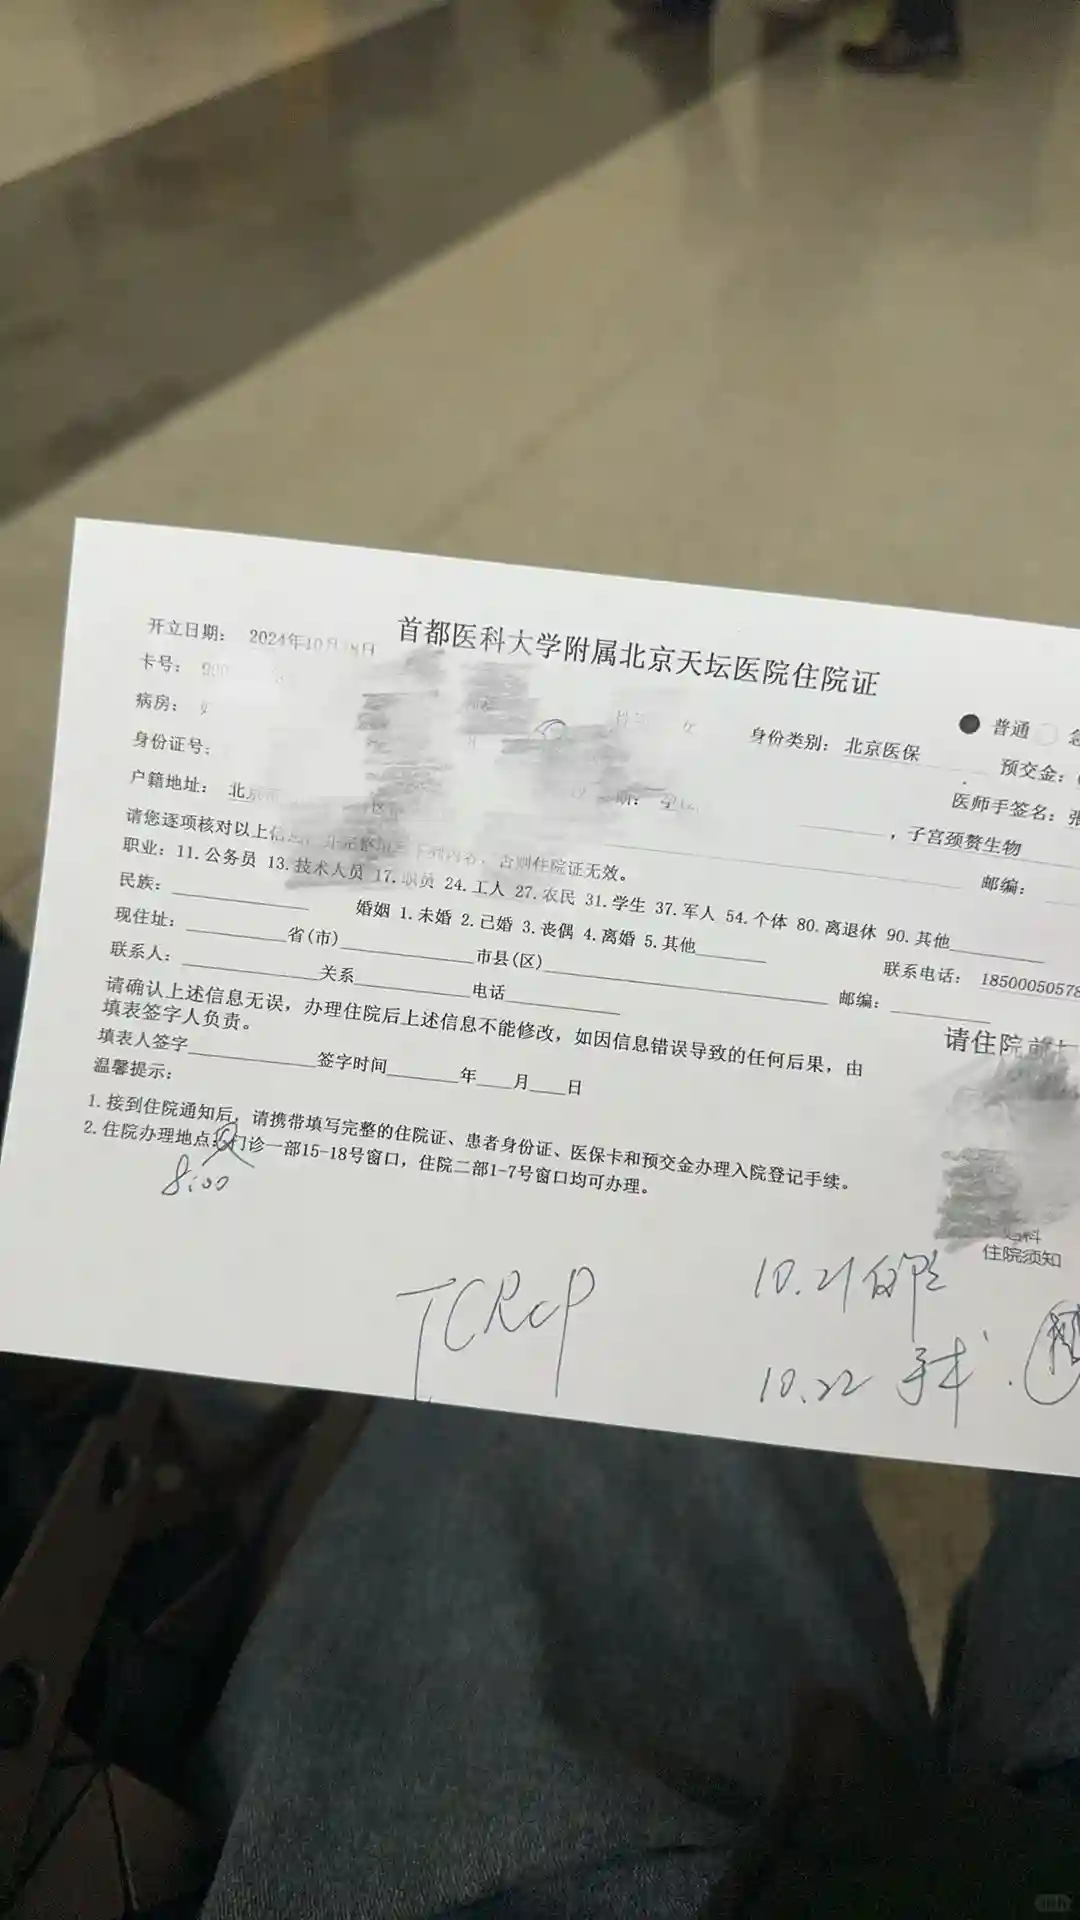 首都医科大学附属北京天坛医院住院证
开立日期： 2024年10月18日
卡号： 900
病房：
身份证号：
身份类别：北京医保
普通
预交金：
户籍地址： 北京
医师手签名：
，子宫颈赘生物
请您逐项核对以上信息，并完整填写下列内容，否则住院证无效。
邮编：
职业：11.公务员 13.技术人员 17.职员 24.工人 27.农民 31.学生 37.军人 54.个体 80.离退休 90.其他
民族： 婚姻 1.未婚 2.已婚 3.丧偶 4.离婚 5.其他
联系电话： 18500050578
现住址： 省(市) 市县(区) 邮编：
联系人： 关系 电话
请确认上述信息无误，办理住院后上述信息不能修改，如因信息错误导致的任何后果，由
填表签字人负责。
请住院前
填表人签字 签字时间 年 月 日
温馨提示：
1.接到住院通知后，请携带填写完整的住院证、患者身份证、医保卡和预交金办理入院登记手续。
2.住院办理地点： 门诊一部15-18号窗口，住院二部1-7号窗口均可办理。
8:00
住院须知
TCRcP
10.21 住院
10.22 手术.